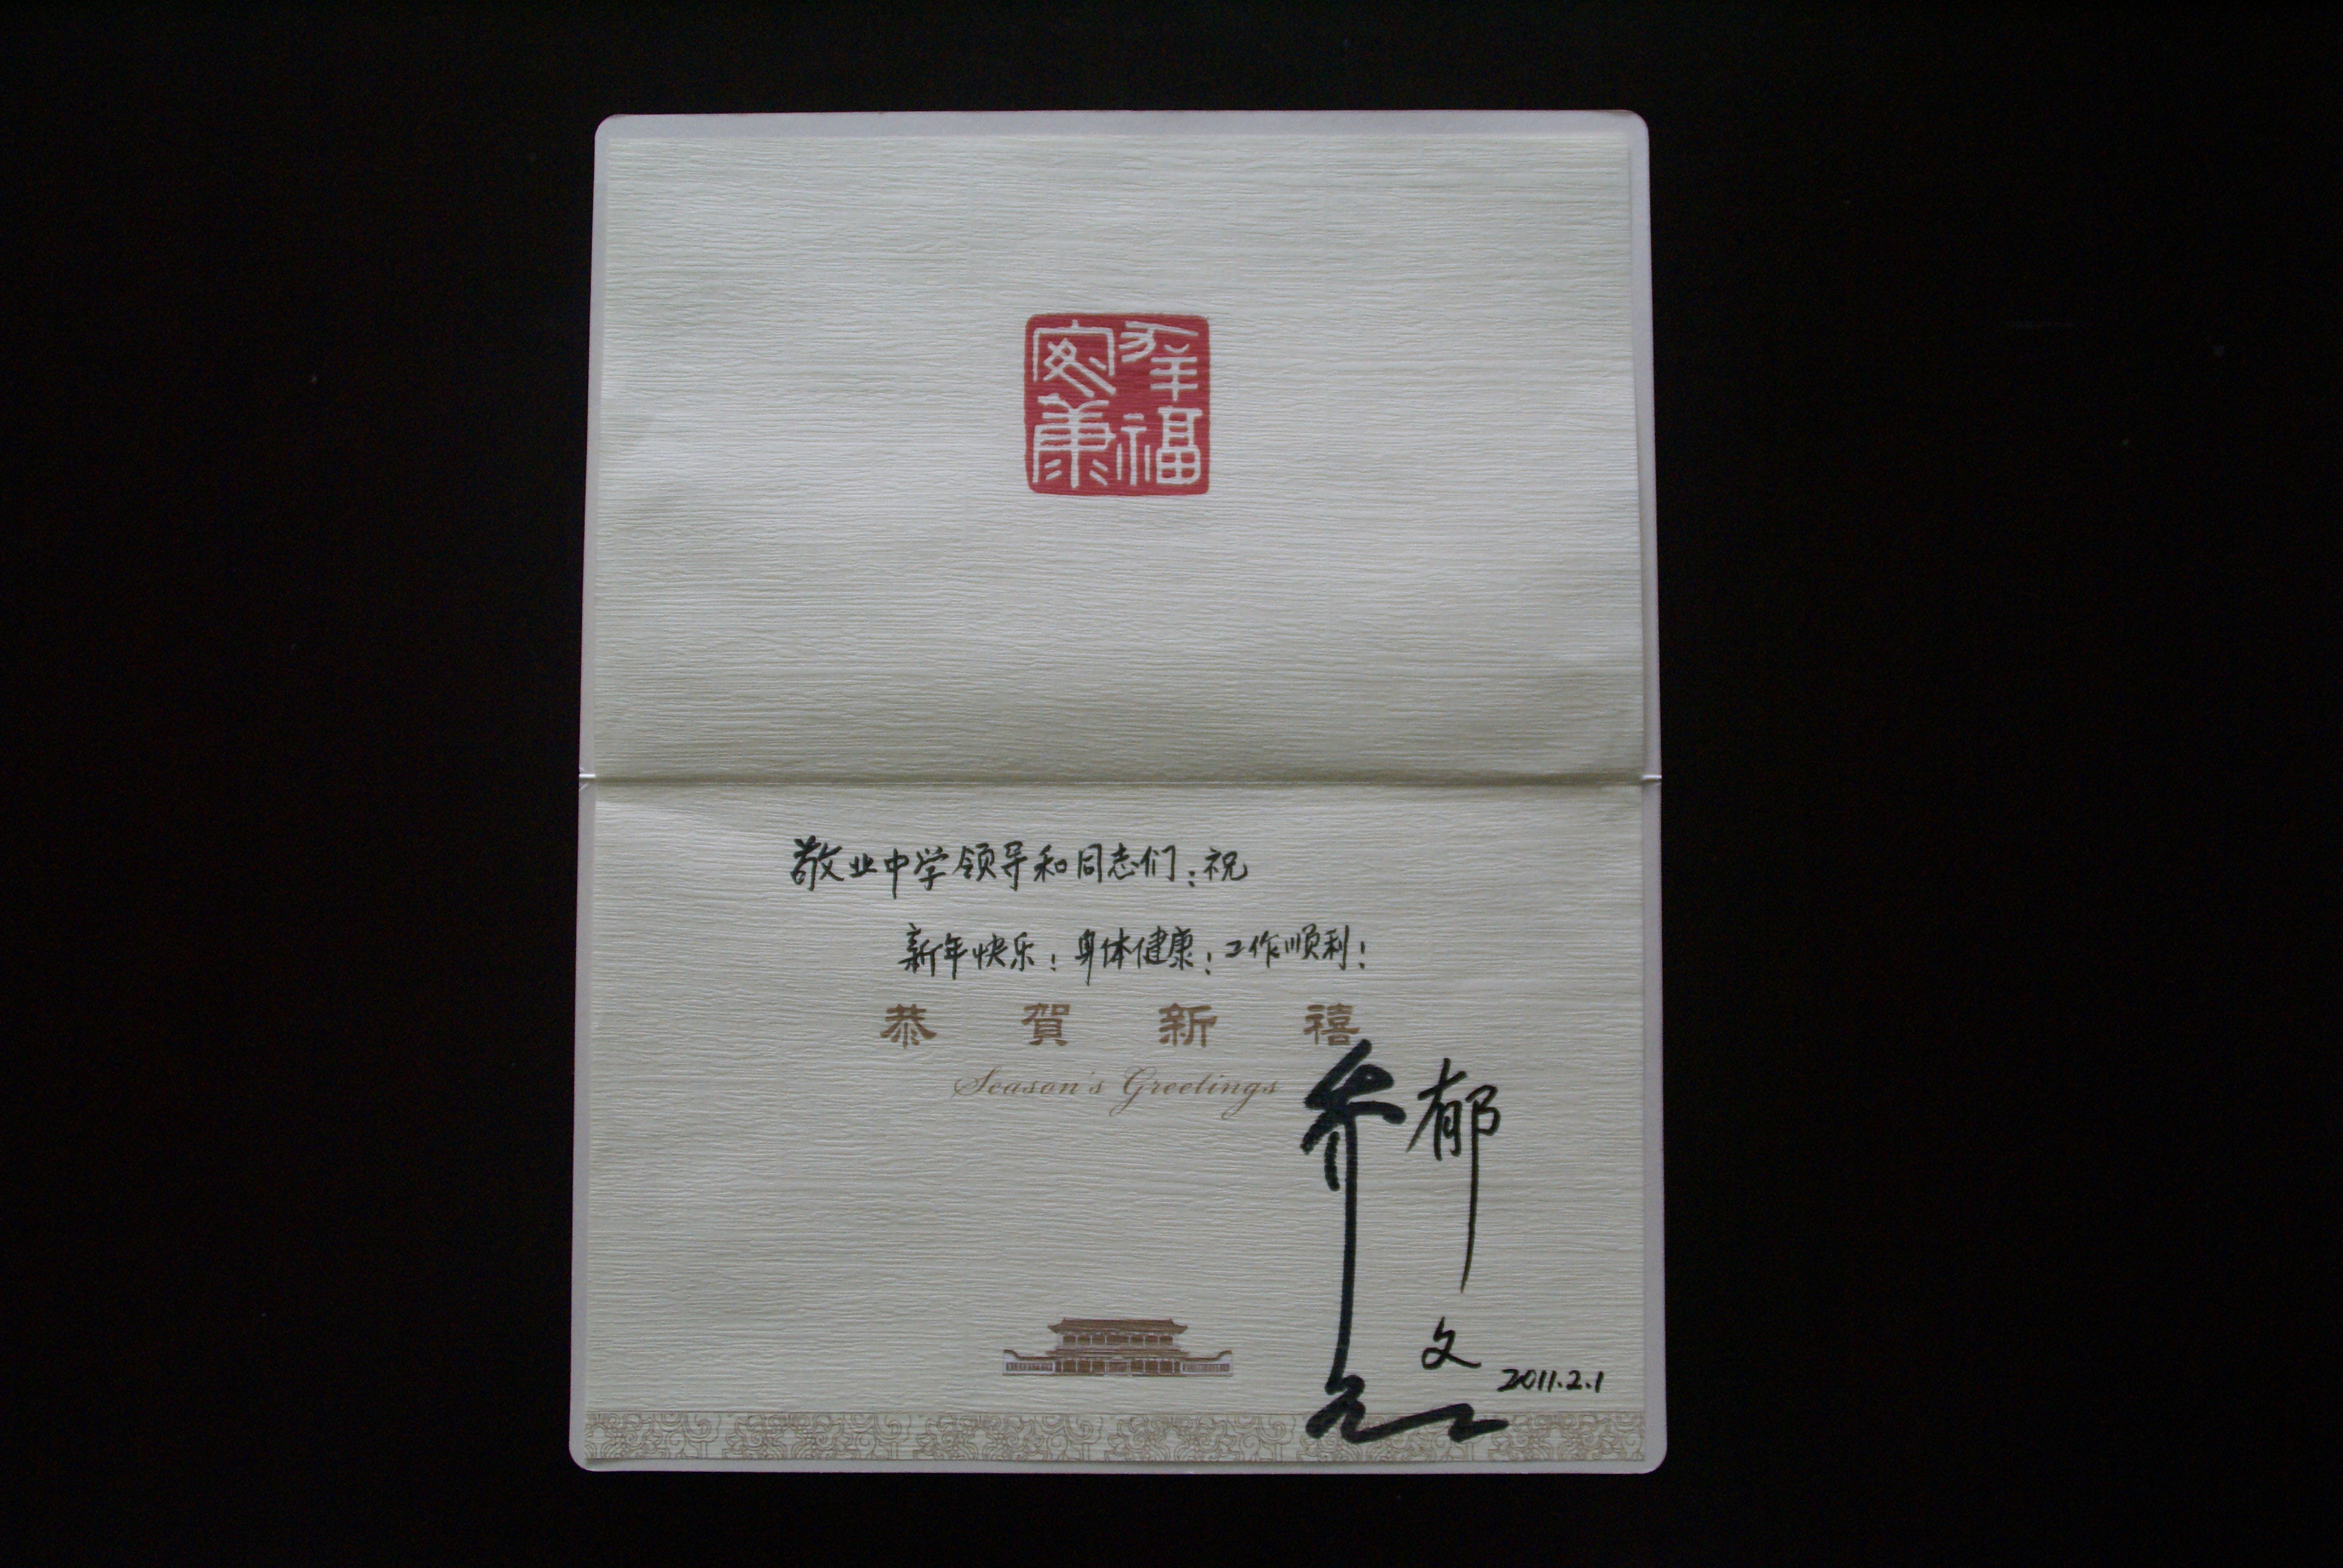 祥福安康
敬业中学领导和同志们:祝
新年快乐!身体健康!工作顺利!
恭賀新禧
Season's Greetings
乔石
郁文
2011.2.1